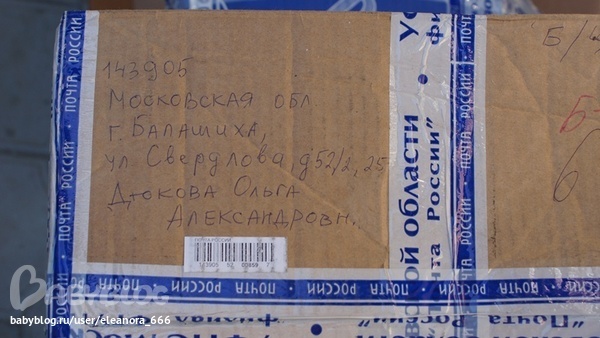 143905
Московская обл
г. Балашиха,
ул Свердлова д52/2, 25
Дюкова Ольга
Александровн.
143905 52 00869 7
ПОЧТА РОССИИ
ПОЧТА РОССИИ
ПОЧТА РОССИИ
области
России"
"Почта
России"
Б/ц
BABYBLOG
babyblog.ru/user/eleanora_666